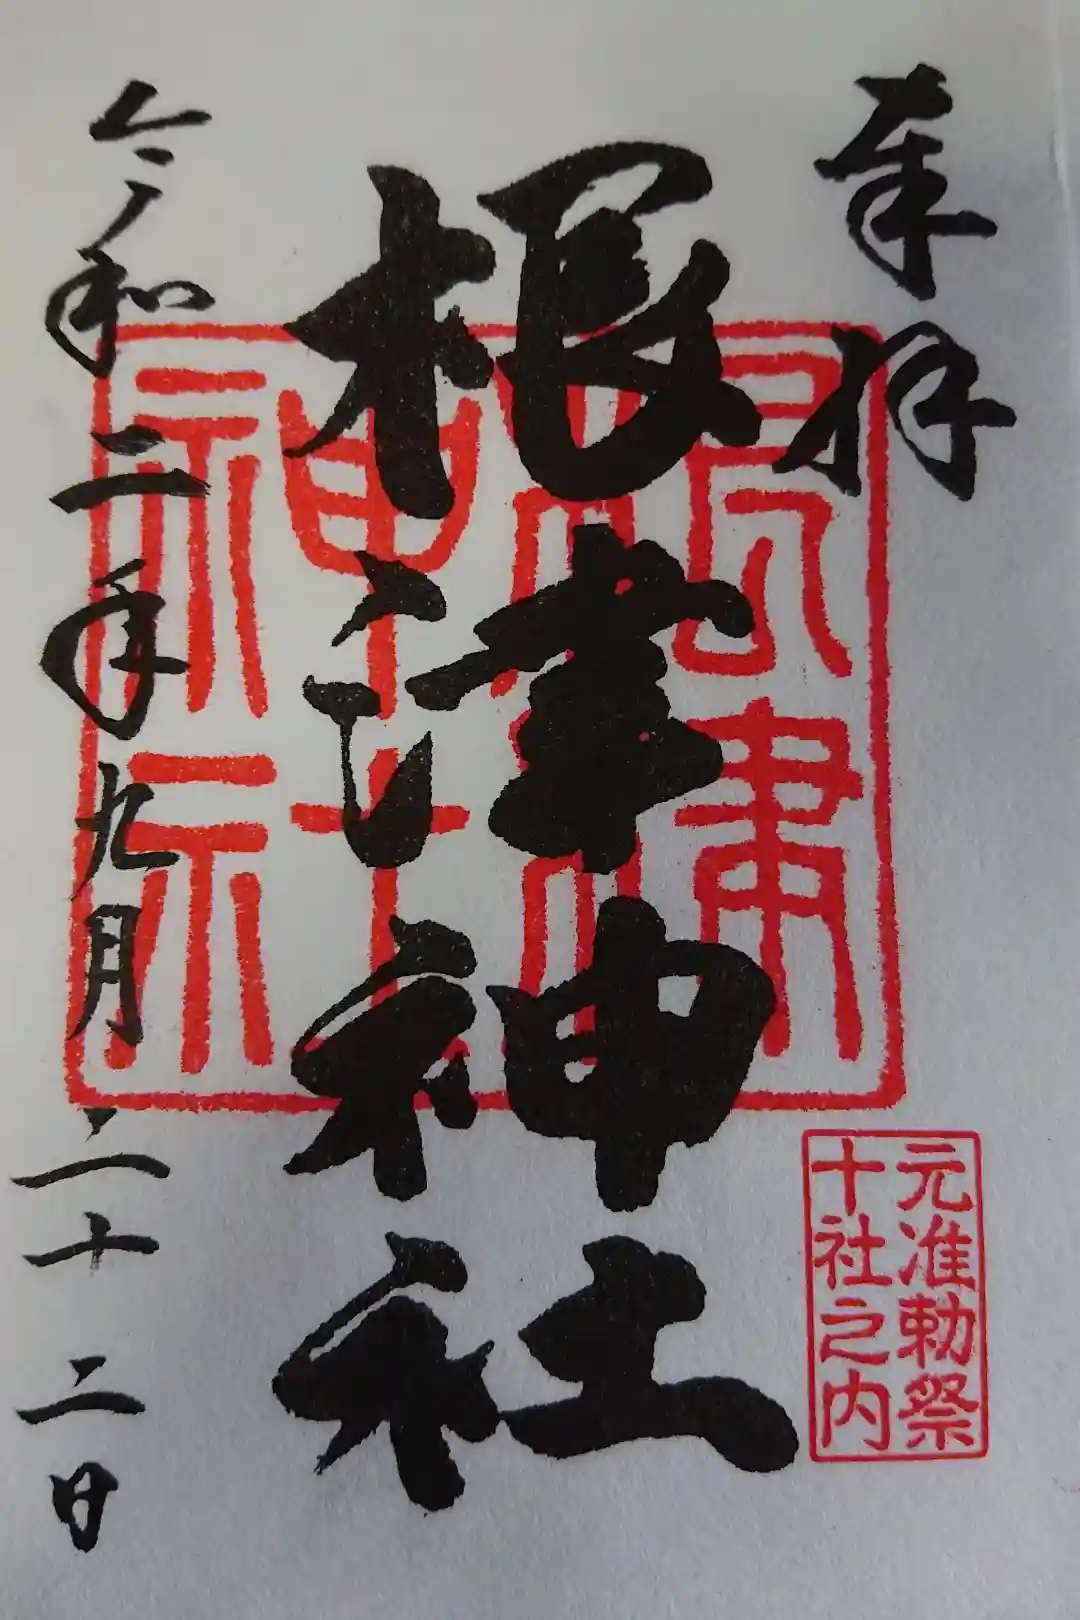 奉拝
根津神社
根津神社
元准勅祭
十社之内
令和二年九月二十二日